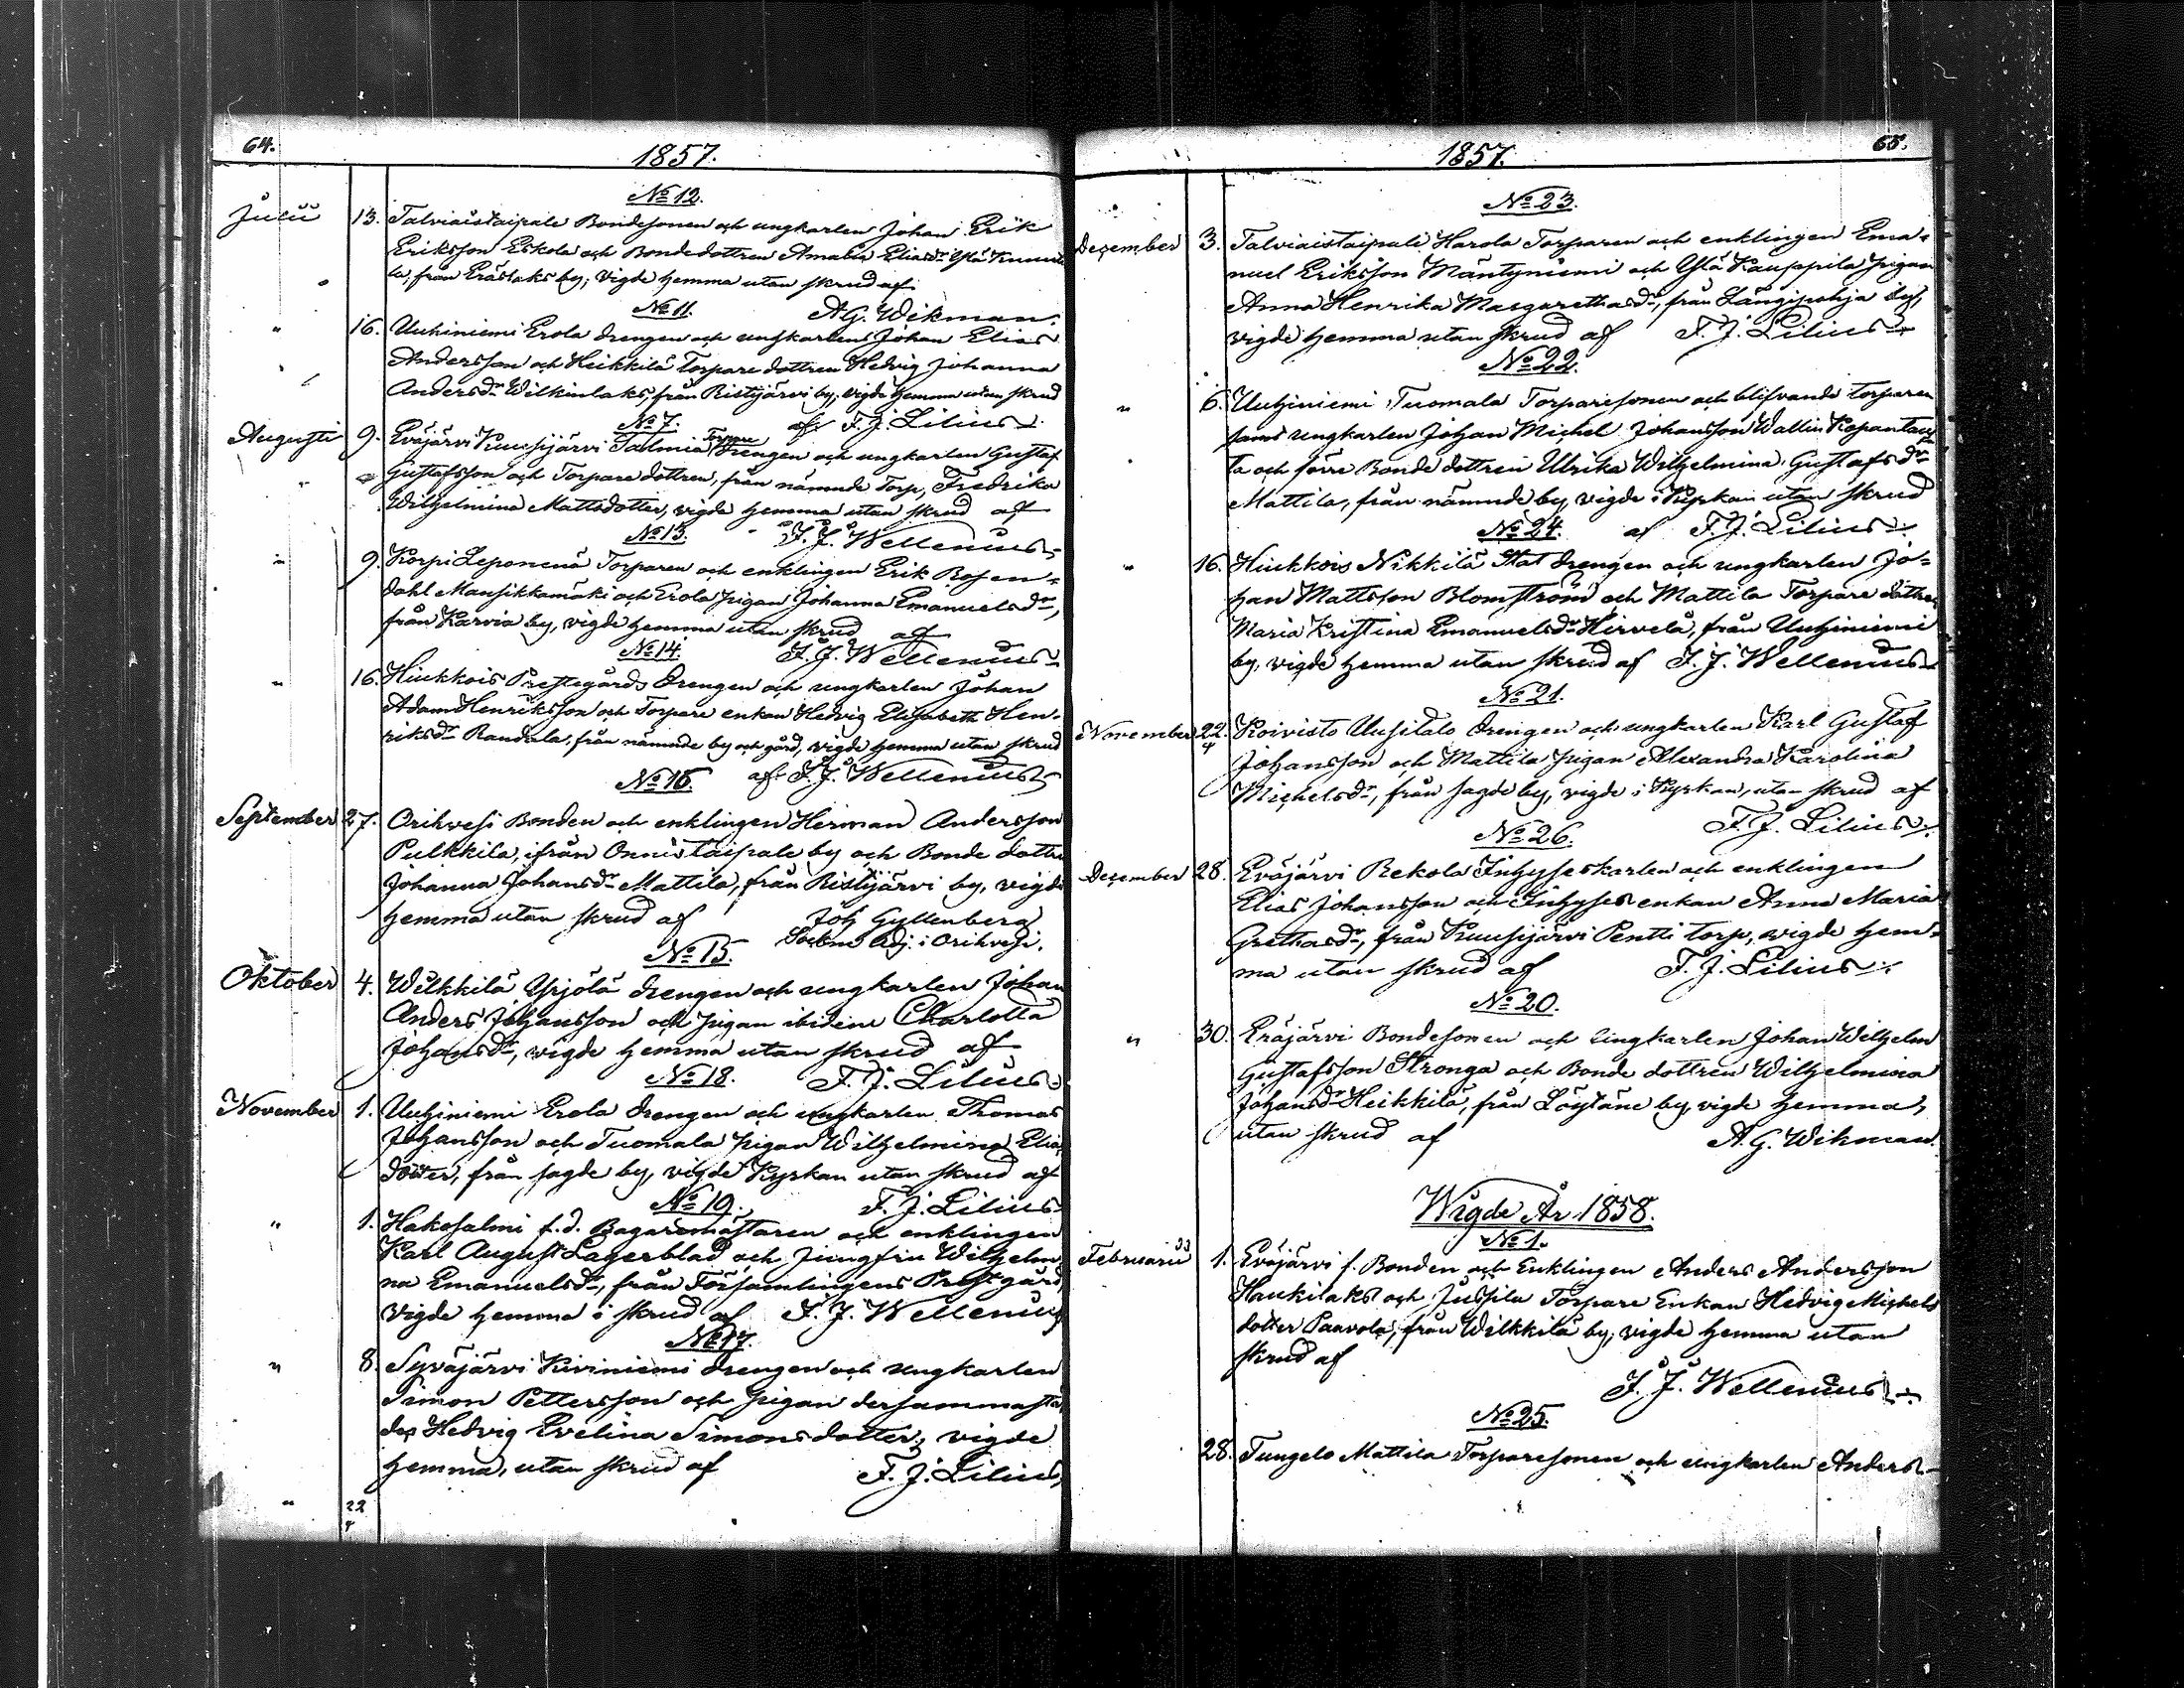 64.
1857.
No 12.
Julii 13. Talviaistaipale Bondesonen och ungkarlen Johan Erik
Eriksson Eskola och Bondedottren Amalia Eliasdr Ylä
la, från Eräslaks by, vigde hemma utan skrud af
A.G. Wikman.
No 11.
" 16. Uuhiniemi Erola drengen och ungkarlen Johan Elias
Andersson och Heikkilä Torpare dottren Hedvig Johanna
Andersdr Wilkinlaks, från Ristijärvi by, vigde hemma utan skrud
af F. J. Lilius
No 7.
Augusti 9. Eväjärvi Kuusijärvi Torpare drengen och ungkarlen Gustaf
Gustafsson och Torpare dottren, från nämnde Torp, Fredrika
Wilhelmina Mattsdotter, vigde hemma utan skrud af
F. J. Wellenius
No 13.
" 9. Korpi Leponenä Torparen och enklingen Erik Rosen-
dahl Mansikkamäki och Erola pigan Johanna Emanuelsdr,
från Karvia by, vigde hemma utan skrud af
F. J. Wellenius
No 14.
" 16. Hiukkois Prestegårds drengen och ungkarlen Johan
Adam Henriksson och Torpare enkan Hedvig Elisabeth Hen-
riksdr Randala, från nämnde by och gård, vigde hemma utan skrud
af F. J. Wellenius
No 16.
September 27. Orihvesi Bonden och enklingen Herman Andersson
Pulkkila, ifrån Onnistaipale by och Bonde dottr
Johanna Johansdr Mattila, från Ristijärvi by, vigde
hemma utan skrud af Joh Gyllenberg
Sockne Adj. i Orihvesi.
No 15.
Oktober 4. Wilkkilä Yrjölä drengen och ungkarlen Johan
Anders Johansson och pigan ibidem Charlotta
Johansdr, vigde hemma utan skrud af
F. J. Lilius
No 18.
November 1. Uuhiniemi Erola drengen och ungkarlen Thomas
Johansson och Tuomala pigan Wilhelmina Elias
dotter, från sagde by, vigde Kyrkan utan skrud af
F. J. Lilius
No 19.
" 1. Hakosalmi f.d. Bagaremästaren och enklingen
Karl August Lagerblad och Jungfru Wilhelm
na Emanuelsdr, från Församlingens Prestgård,
vigde hemma i skrud af F. J. Wellenius
No 17.
" 8. Syväjärvi Kiviniemi drengen och ungkarlen
Simon Pettersson och pigan dersammastä
des Hedvig Evelina Simonsdotter, vigde
hemma, utan skrud af F. J. Lilius
" 22
4
65.
1857.
No 23.
December 3. Talviaistaipale Harola Torparen och enklingen Ema-
nuel Eriksson Mäntyniemi och Ylä Kauppila pigan
Anna Henrika Margarethasdr, från Längipohja by,
vigde hemma utan skrud af F. J. Lilius
No 22.
" 6. Uuhiniemi Tuomala Torparesonen och blifvande torparen
samt ungkarlen Johan Michel Johansson Wallin Kopantaus
ta och förre Bonde dottren Ulrika Wilhelmina Gustafsdr
Mattila, från nämnde by, vigde i Kyrkan utan skrud
af F. J. Lilius
No 24.
" 16. Hiukkois Nikkilä Stat drengen och ungkarlen Jo-
han Mattsson Blomström och Mattila Torpare dottren
Maria Kristina Emanuelsdr Hirvelä, från Uuhiniemi
by, vigde hemma utan skrud af F. J. Wellenius
No 21.
November 22. Koivisto Uusitalo drengen och ungkarlen Karl Gustaf
4
Johansson och Mattila pigan Alexandra Karolina
Michelsdr, från sagde by, vigde i Kyrkan, utan skrud af
F. J. Lilius
No 26.
December 28. Eväjärvi Rekola Inhyseskarlen och enklingen
Elias Johansson och Inhyses enkan Anna Maria
Grethasdr, från Kuusijärvi Pentti torp, vigde hem-
ma utan skrud af F. J. Lilius
No 20.
" 30. Eräjärvi Bondesonen och ungkarlen Johan Wilhelm
Gustafsson Stronga och Bonde dottren Wilhelmina
Johansdr Heikkilä, från Löytäne by, vigde hemma,
utan skrud af A. G. Wikman.
Wigde År 1858.
No 1.
Februarii 1. Eväjärvi f. Bonden och Enklingen Anders Andersson
Haukilaks och Jussila Torpare Enkan Hedvig Michels
dotter Paavola, från Wilkkilä by, vigde hemma utan
skrud af
F. J. Wellenius
No 25.
28. Tungelo Mattila Torparesonen och ungkarlen Anders